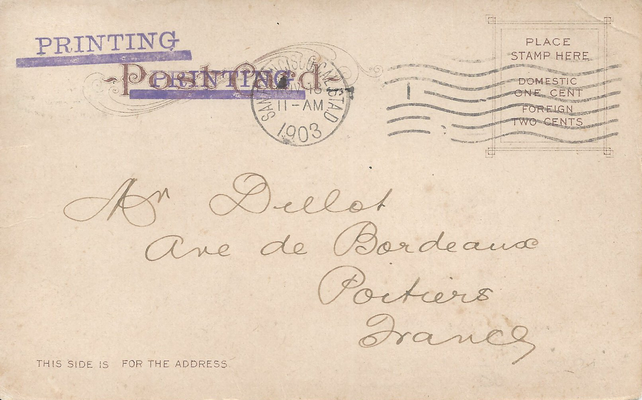 PRINTING
Post Card
PRINTING
SAN
11-AM
1903
STA D
1
PLACE
STAMP HERE
DOMESTIC
ONE CENT
FOREIGN
TWO CENTS
Mr Dillot
Ave de Bordeaux
Poitiers
France
THIS SIDE IS FOR THE ADDRESS